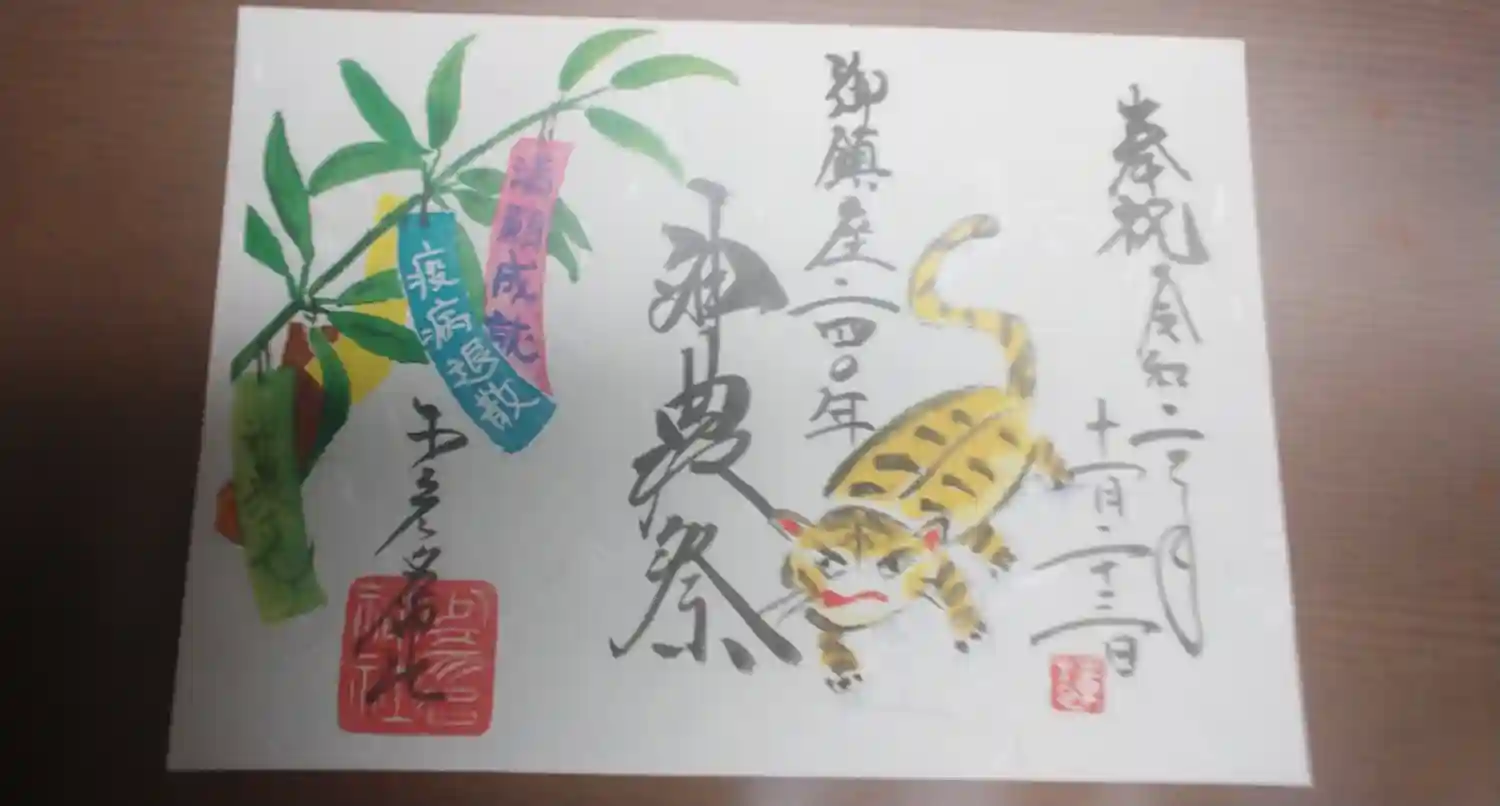 奉祝 令和二年
十一月二十三日
御鎮座二四〇年
神農祭
諸願成就
疫病退散
少彦名神社
少彦名
神社